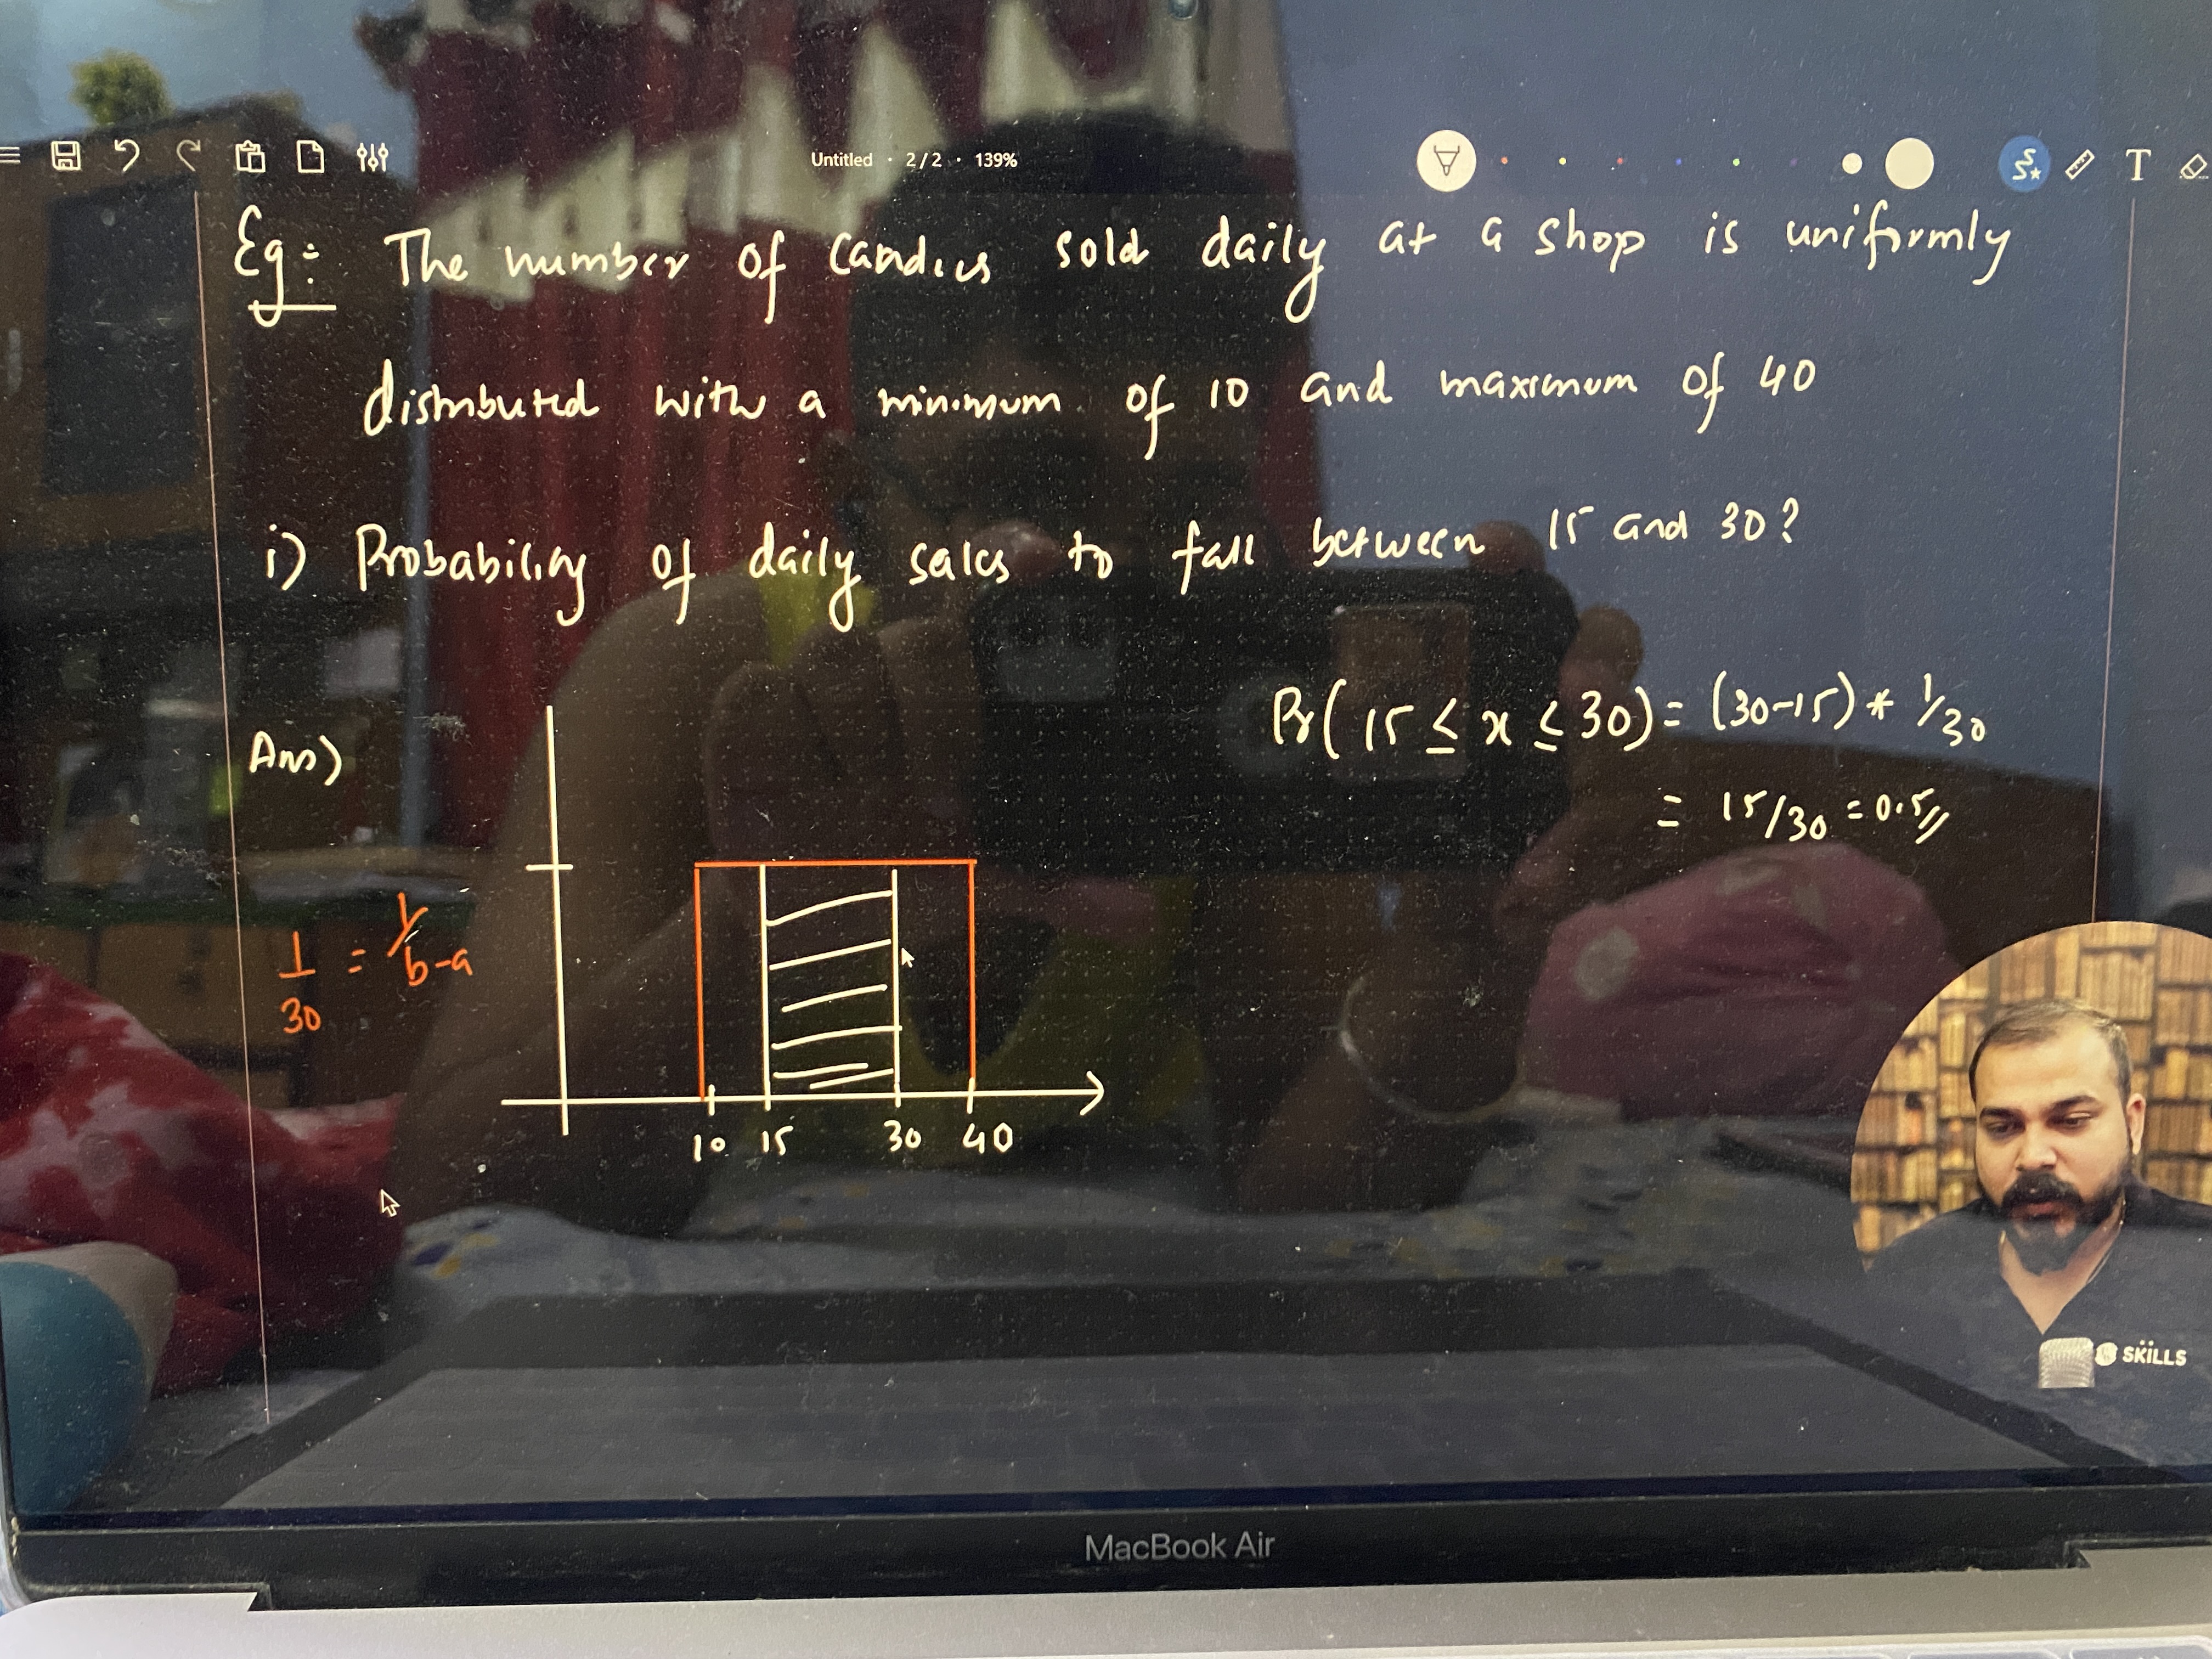 Untitled · 2/2 · 139%
T
Eg:- The number of candies sold daily at a shop is uniformly
distributed with a minimum of 10 and maximum of 40
i) Probability of daily sales to fall between 15 and 30?
Pr(15 ≤ x ≤ 30) = (30-15) * 1/30
= 15/30 = 0.5//
Ans)
1/30 = 1/b-a
10 15 30 40
SKILLS
MacBook Air